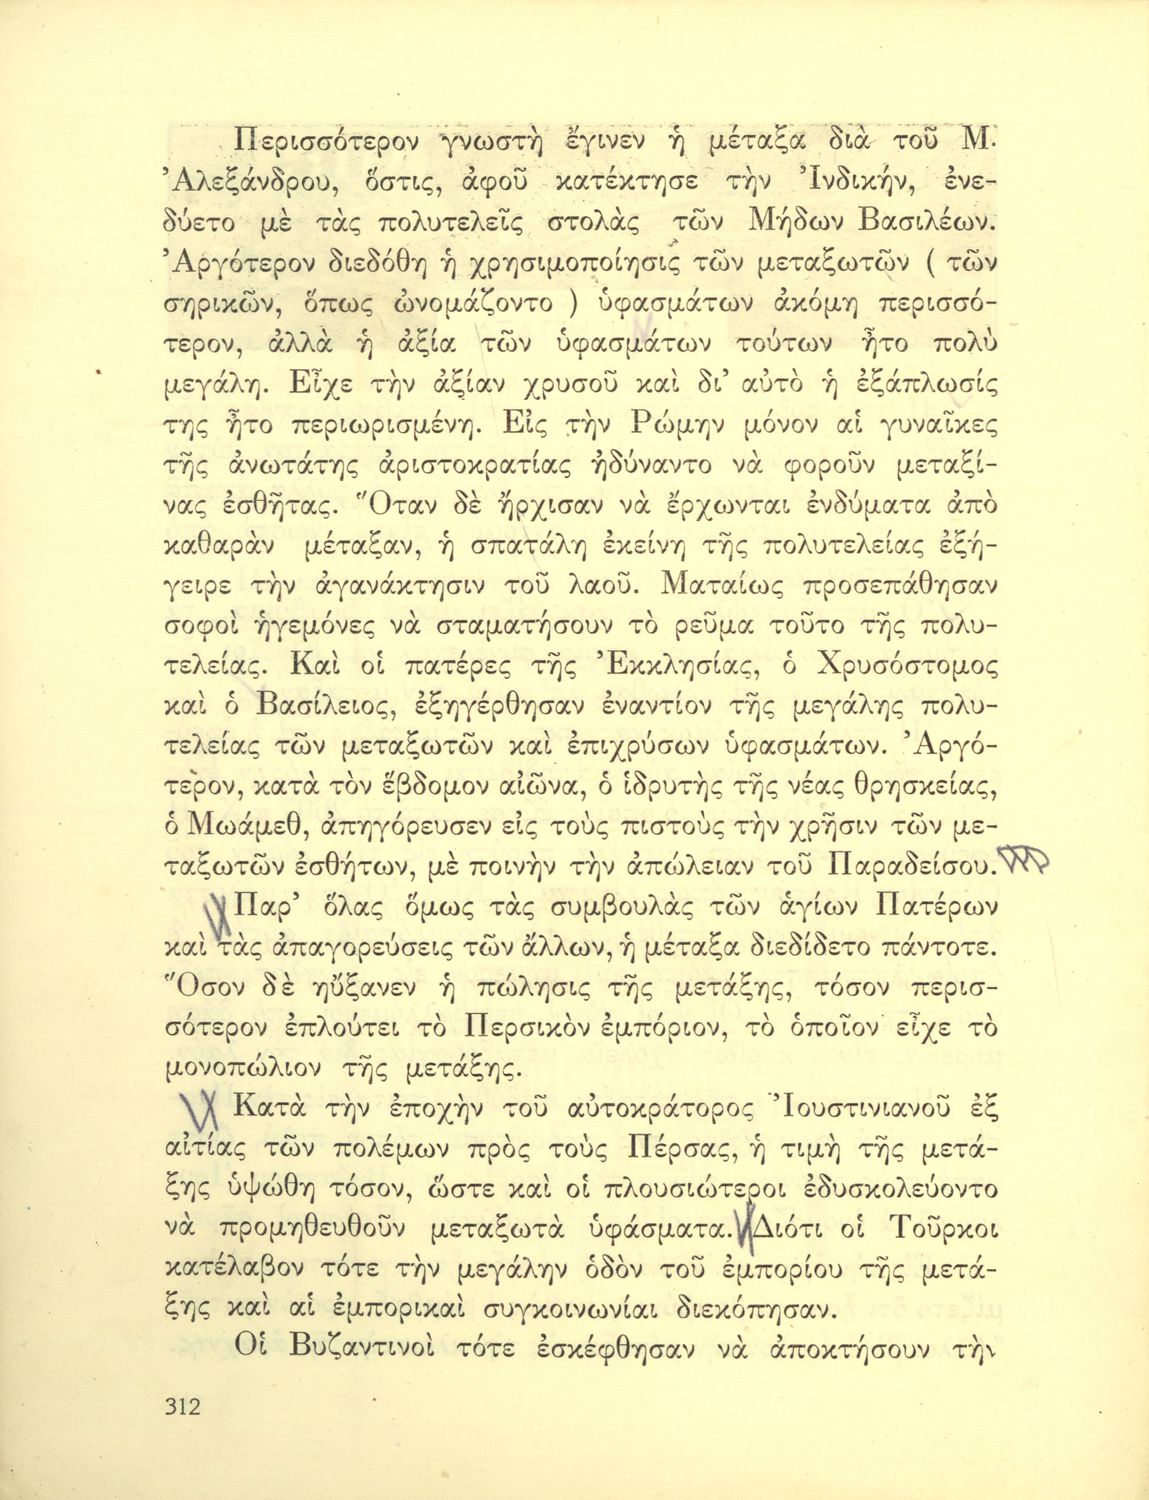 Περισσότερον γνωστὴ ἔγινεν ἡ μέταξα διὰ τοῦ Μ.
Ἀλεξάνδρου, ὅστις, ἀφοῦ κατέκτησε τὴν Ἰνδικήν, ἐνε-
δύετο μὲ τὰς πολυτελεῖς στολὰς τῶν Μήδων Βασιλέων.
Ἀργότερον διεδόθη ἡ χρησιμοποίησις τῶν μεταξωτῶν ( τῶν
σηρικῶν, ὅπως ὠνομάζοντο ) ὑφασμάτων ἀκόμη περισσό-
τερον, ἀλλὰ ἡ ἀξία τῶν ὑφασμάτων τούτων ἦτο πολὺ
μεγάλη. Εἶχε τὴν ἀξίαν χρυσοῦ καὶ δι' αὐτὸ ἡ ἐξάπλωσίς
της ἦτο περιωρισμένη. Εἰς τὴν Ρώμην μόνον αἱ γυναῖκες
τῆς ἀνωτάτης ἀριστοκρατίας ἠδύναντο νὰ φοροῦν μεταξί-
νας ἐσθῆτας. Ὅταν δὲ ἤρχισαν νὰ ἔρχωνται ἐνδύματα ἀπὸ
καθαρὰν μέταξαν, ἡ σπατάλη ἐκείνη τῆς πολυτελείας ἐξή-
γειρε τὴν ἀγανάκτησιν τοῦ λαοῦ. Ματαίως προσεπάθησαν
σοφοὶ ἡγεμόνες νὰ σταματήσουν τὸ ρεῦμα τοῦτο τῆς πολυ-
τελείας. Καὶ οἱ πατέρες τῆς Ἐκκλησίας, ὁ Χρυσόστομος
καὶ ὁ Βασίλειος, ἐξηγέρθησαν ἐναντίον τῆς μεγάλης πολυ-
τελείας τῶν μεταξωτῶν καὶ ἐπιχρύσων ὑφασμάτων. Ἀργό-
τερον, κατὰ τὸν ἕβδομον αἰῶνα, ὁ ἱδρυτὴς τῆς νέας θρησκείας,
ὁ Μωάμεθ, ἀπηγόρευσεν εἰς τοὺς πιστοὺς τὴν χρῆσιν τῶν με-
ταξωτῶν ἐσθήτων, μὲ ποινὴν τὴν ἀπώλειαν τοῦ Παραδείσου.
Παρ' ὅλας ὅμως τὰς συμβουλὰς τῶν ἁγίων Πατέρων
καὶ τὰς ἀπαγορεύσεις τῶν ἄλλων, ἡ μέταξα διεδίδετο πάντοτε.
Ὅσον δὲ ηὔξανεν ἡ πώλησις τῆς μετάξης, τόσον περισ-
σότερον ἐπλούτει τὸ Περσικὸν ἐμπόριον, τὸ ὁποῖον εἶχε τὸ
μονοπώλιον τῆς μετάξης.
Κατὰ τὴν ἐποχὴν τοῦ αὐτοκράτορος Ἰουστινιανοῦ ἐξ
αἰτίας τῶν πολέμων πρὸς τοὺς Πέρσας, ἡ τιμὴ τῆς μετά-
ξης ὑψώθη τόσον, ὥστε καὶ οἱ πλουσιώτεροι ἐδυσκολεύοντο
νὰ προμηθευθοῦν μεταξωτὰ ὑφάσματα. Διότι οἱ Τοῦρκοι
κατέλαβον τότε τὴν μεγάλην ὁδὸν τοῦ ἐμπορίου τῆς μετά-
ξης καὶ αἱ ἐμπορικαὶ συγκοινωνίαι διεκόπησαν.
Οἱ Βυζαντινοὶ τότε ἐσκέφθησαν νὰ ἀποκτήσουν τὴν
312